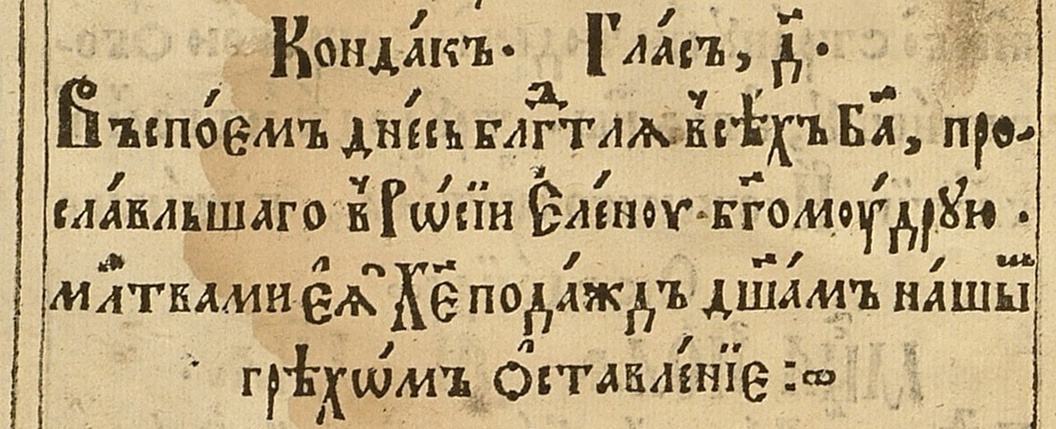 Конда́къ. Гла́съ, д҃.
Въспо́емъ дне́сь бл҃гⷣтлѧ в̾сѣ́хъ Бг҃а, про-
сла́вльшаго в̾ Рѡсїи Є҆ле́ноу бг҃омоу́дрꙋю.
мл҃твами є҆ѧ̀ Хе҃ пода́ждь дш҃а́мъ на́шыⷨ
грѣхѡ́мъ ѡ҆ставле́нїе :